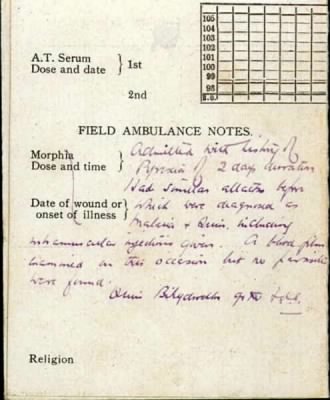 105
104
103
102
101
100
99
98
A.T. Serum
Dose and date } 1st
2nd
FIELD AMBULANCE NOTES.
Morphia
Dose and time }
Date of wound or
onset of illness }
Admitted with history of
Pyrexia of 2 days duration
Had similar attacks before
which were diagnosed as
Malaria & Quin. including
intramuscular injections given. A blood film
examined on this occasion but no parasites
were found.
Quin Bihydrochlor
Religion